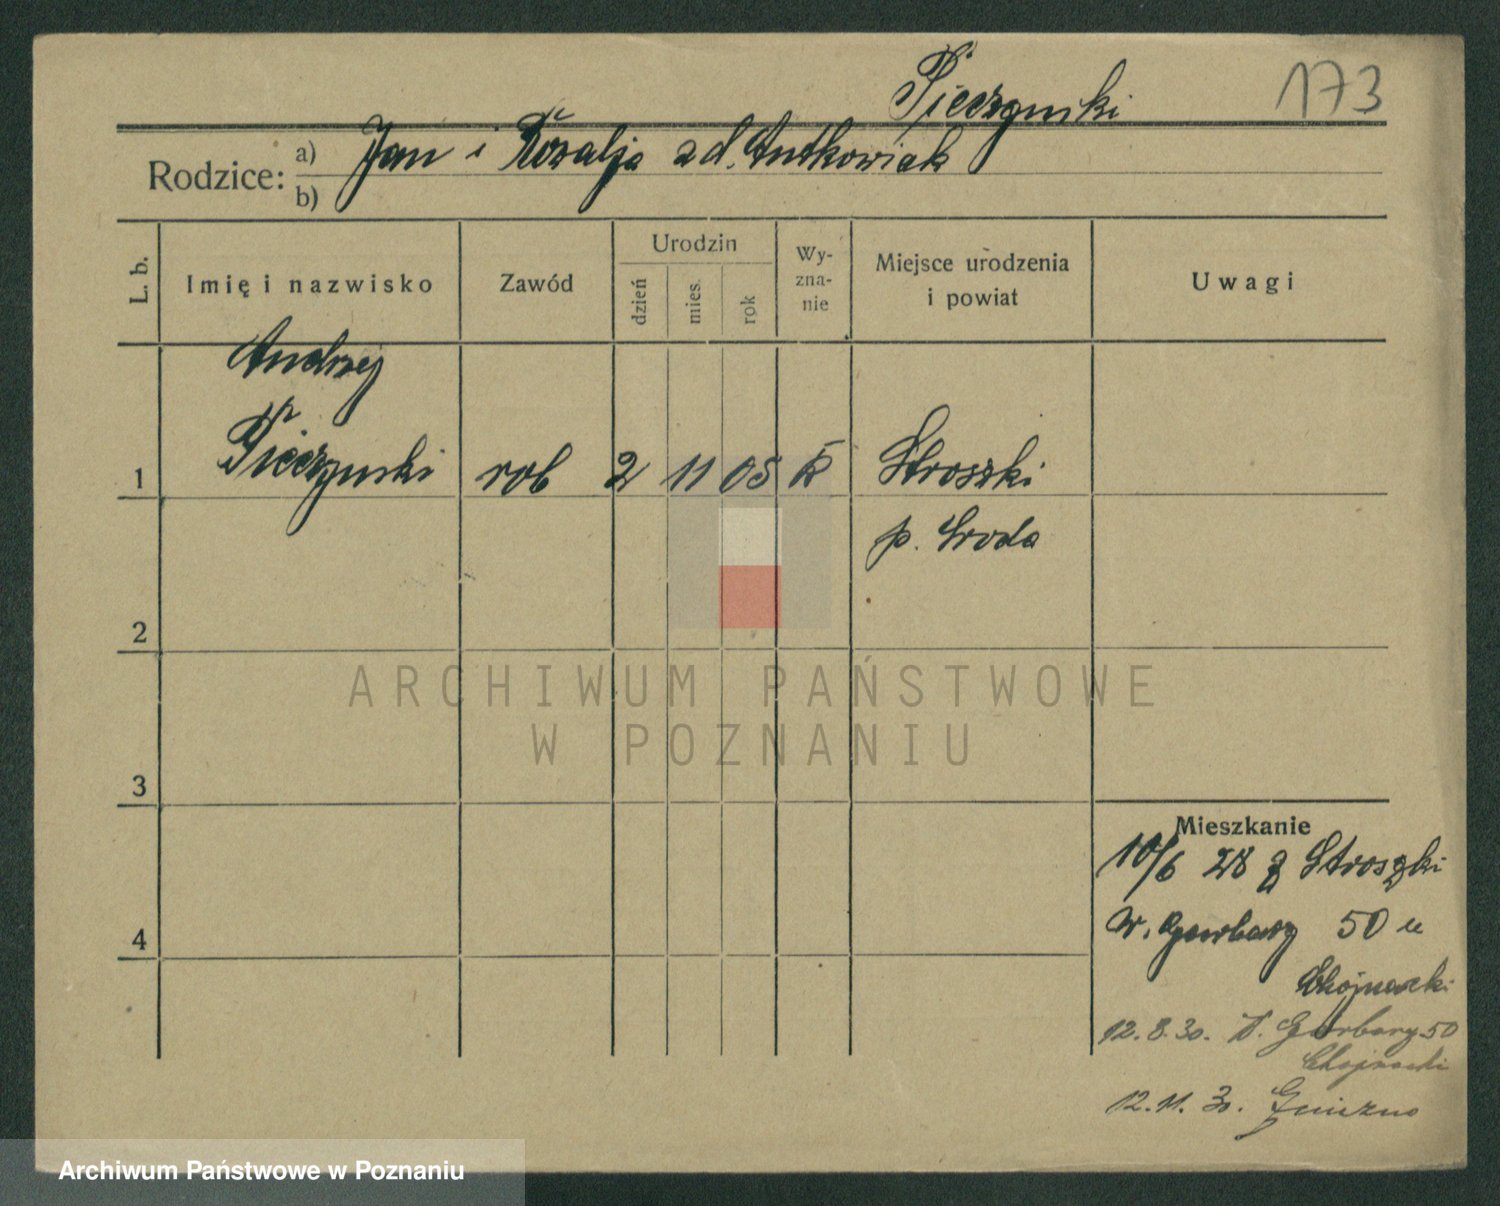 Pieczyński
173
Rodzice:
a) Jan i Rozalja zd. Antkowiak
b)
L. b.
Imię i nazwisko
Zawód
Urodzin
dzień
mies.
rok
Wy-
zna-
nie
Miejsce urodzenia
i powiat
Uwagi
Andrzej
1 Pieczyński rob 2 11 05 k Stroszki
p. Sroda
2
ARCHIWUM PAŃSTWOWE
W POZNANIU
3
Mieszkanie
10/6 28 z Stroszki
4
W. Garbary 50 u
Chojnacki
12.8.30. W. Garbary 50
Chojnacki
12.11.30. Gniezno
Archiwum Państwowe w Poznaniu